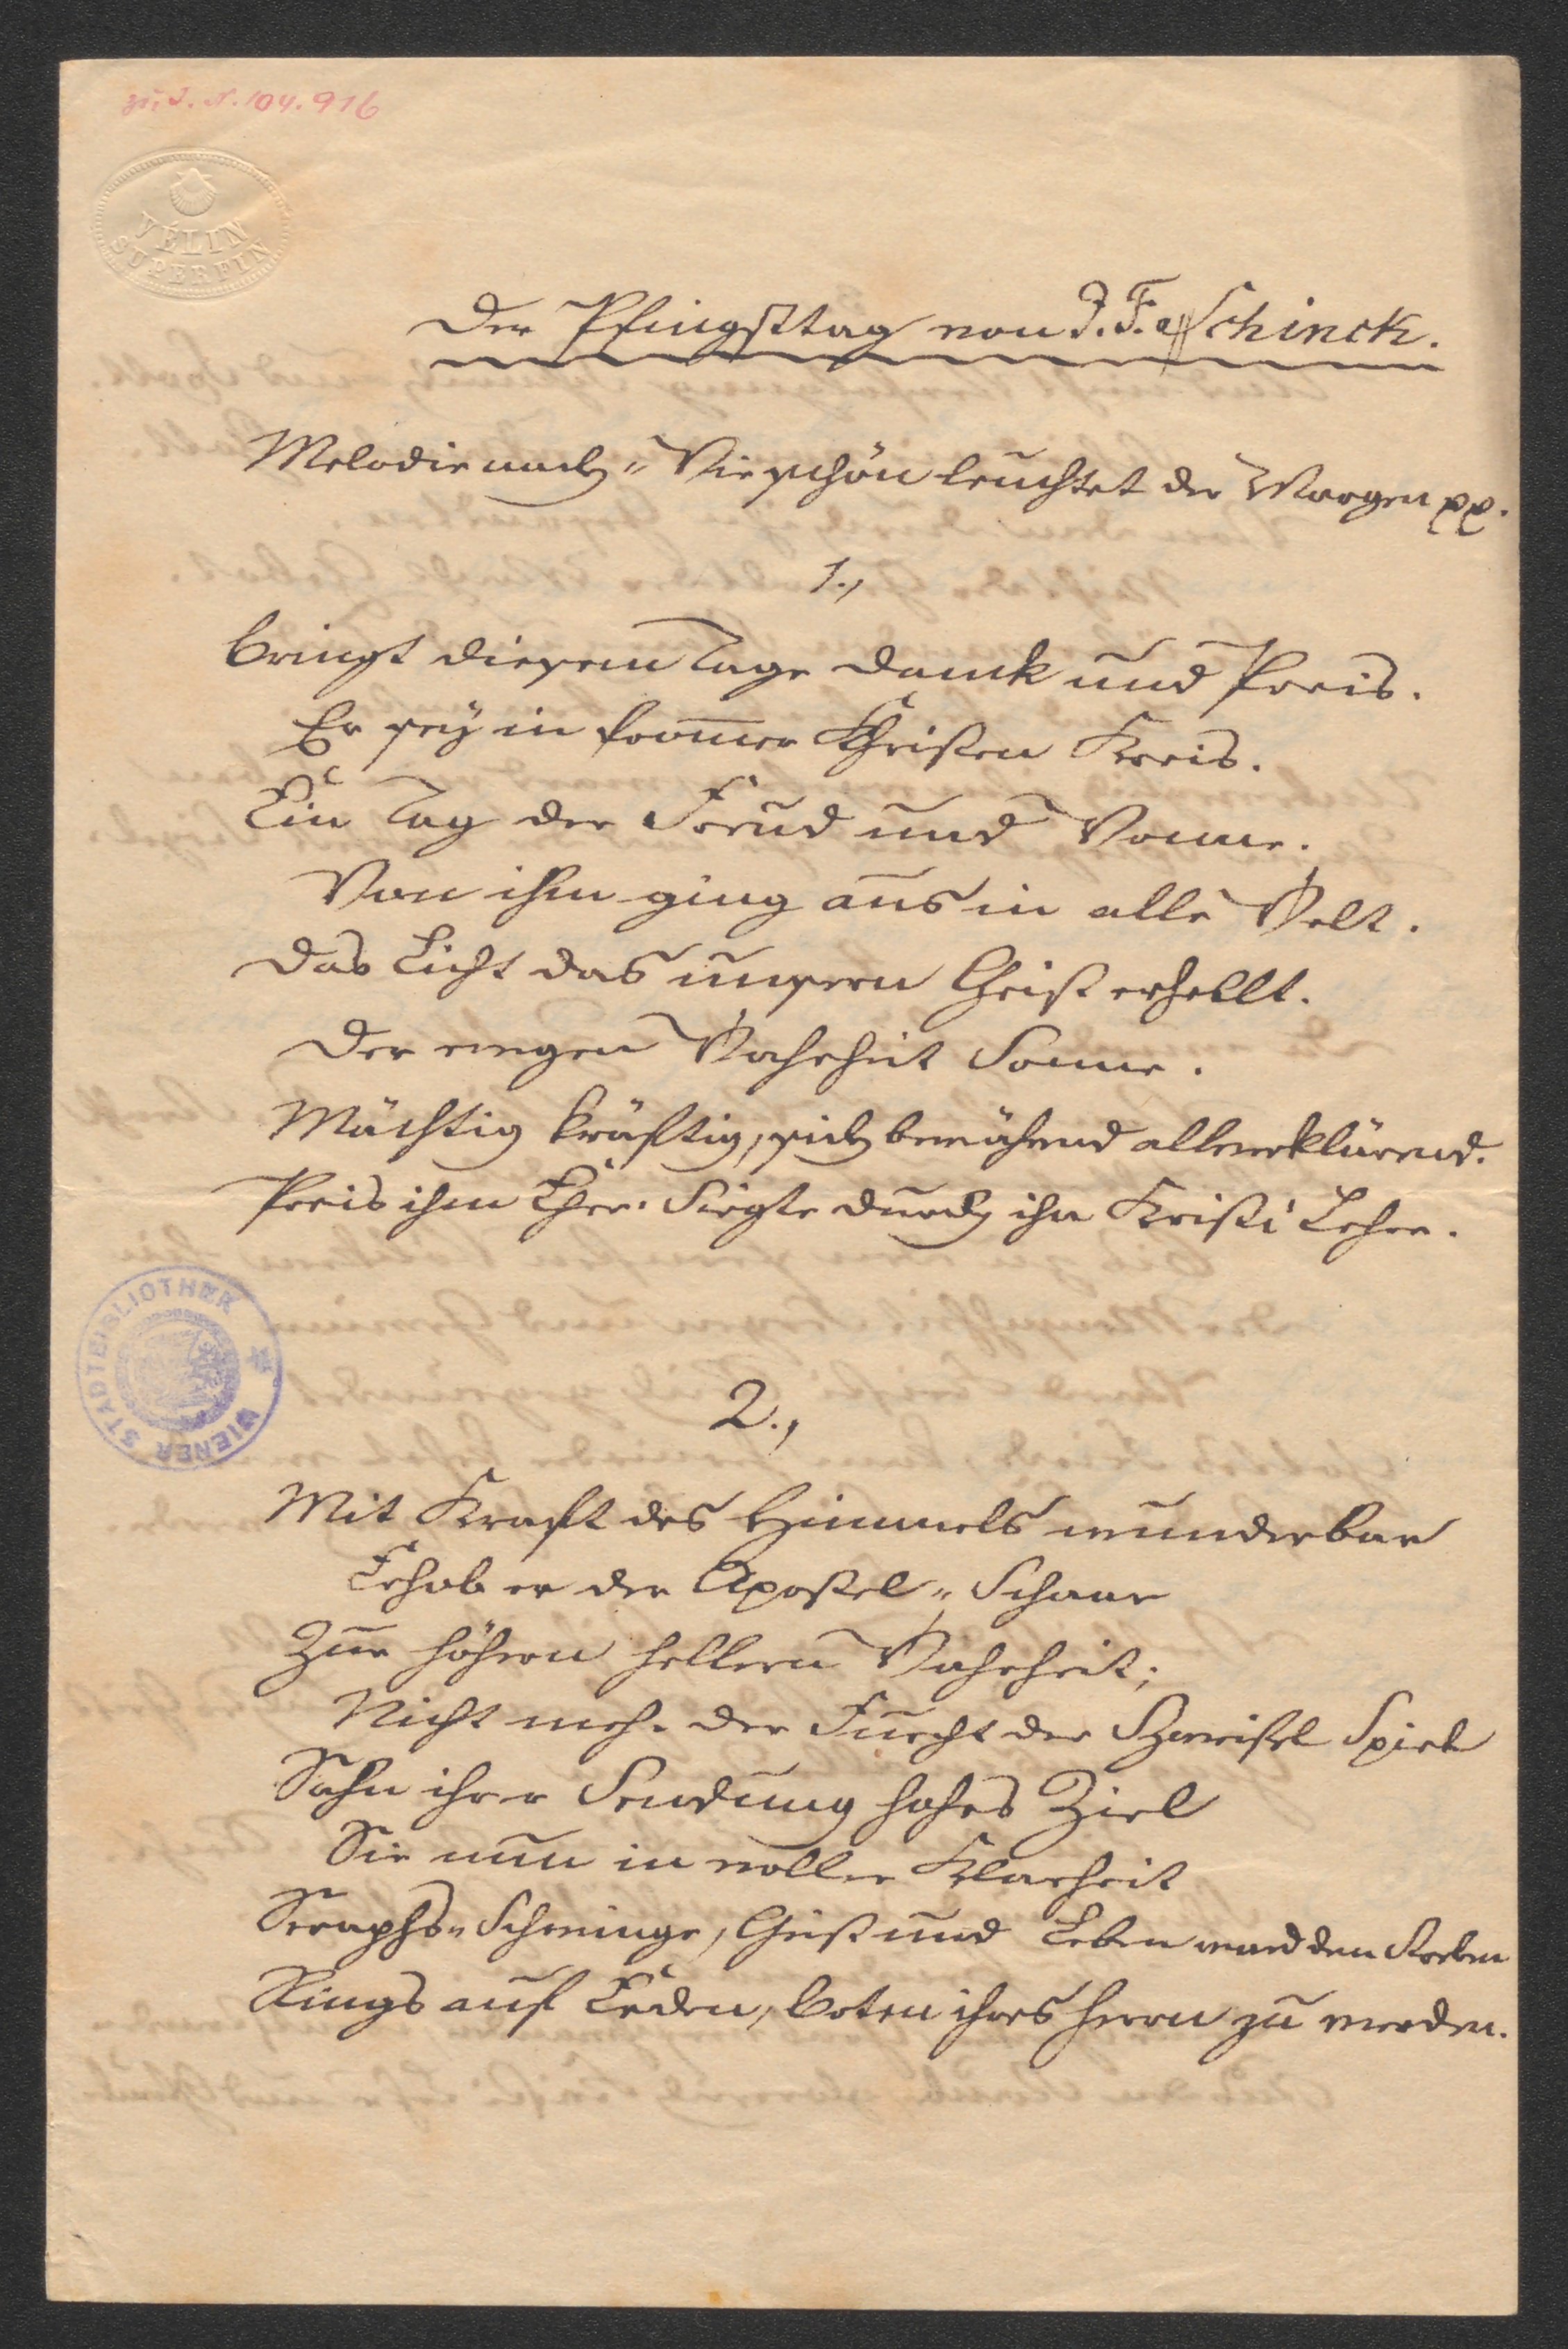 zu I. N. 104.916
VÉLIN
SUPERFIN
Der Pfingsttag von J. F. Schinck.
Melodie nach „Wie schön leuchtet der Morgen pp.
1.,
bringt diesem Tage Dank und Preis.
Er sey in from̅er Christen Kreis.
Ein Tag der Freud und Wonne.
Von ihm ging aus in alle Welt.
Das Licht das unsern Geist erhellt.
Der ewgen Wahrheit Sonne.
Mächtig kräftig, sich bewährend allverklärend.
Preis ihm Ehre. Siegte durch ihn Kristi Lehre.
WIENER STADTBIBLIOTHEK
2.,
Mit Kraft des Himmels wunderbar
Erhob er der Apostel„ Schaar
Zur höhern hellern Wahrheit;
Nicht mehr der Furcht der Zweifel Spiel
Sahn ihrer Sendung hohes Ziel
Sie nun in voller Klarheit
Seraphs„ Schwinge, Geist und Leben ward dem Streben
Rings auf Erden, boten ihres Herrn zu werden.